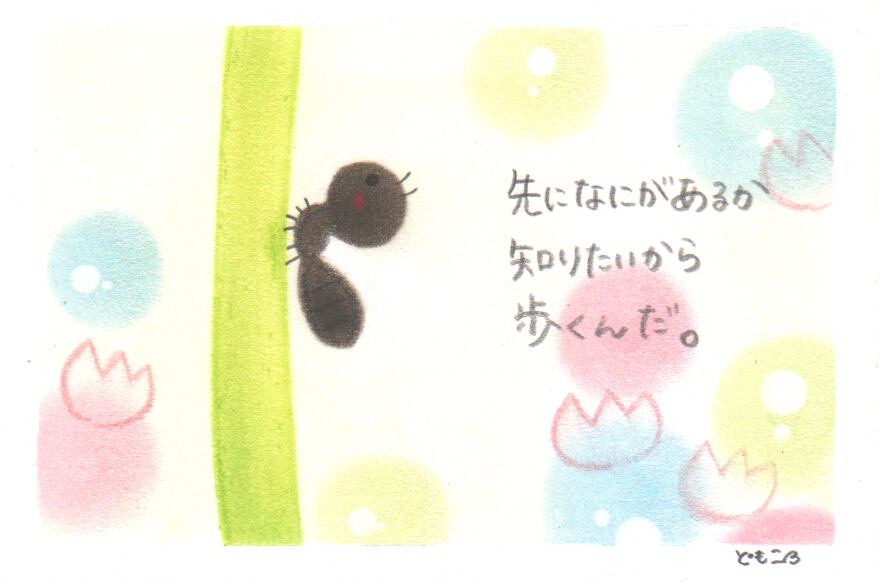 先になにがあるか
知りたいから
歩くんだ。
ともころ